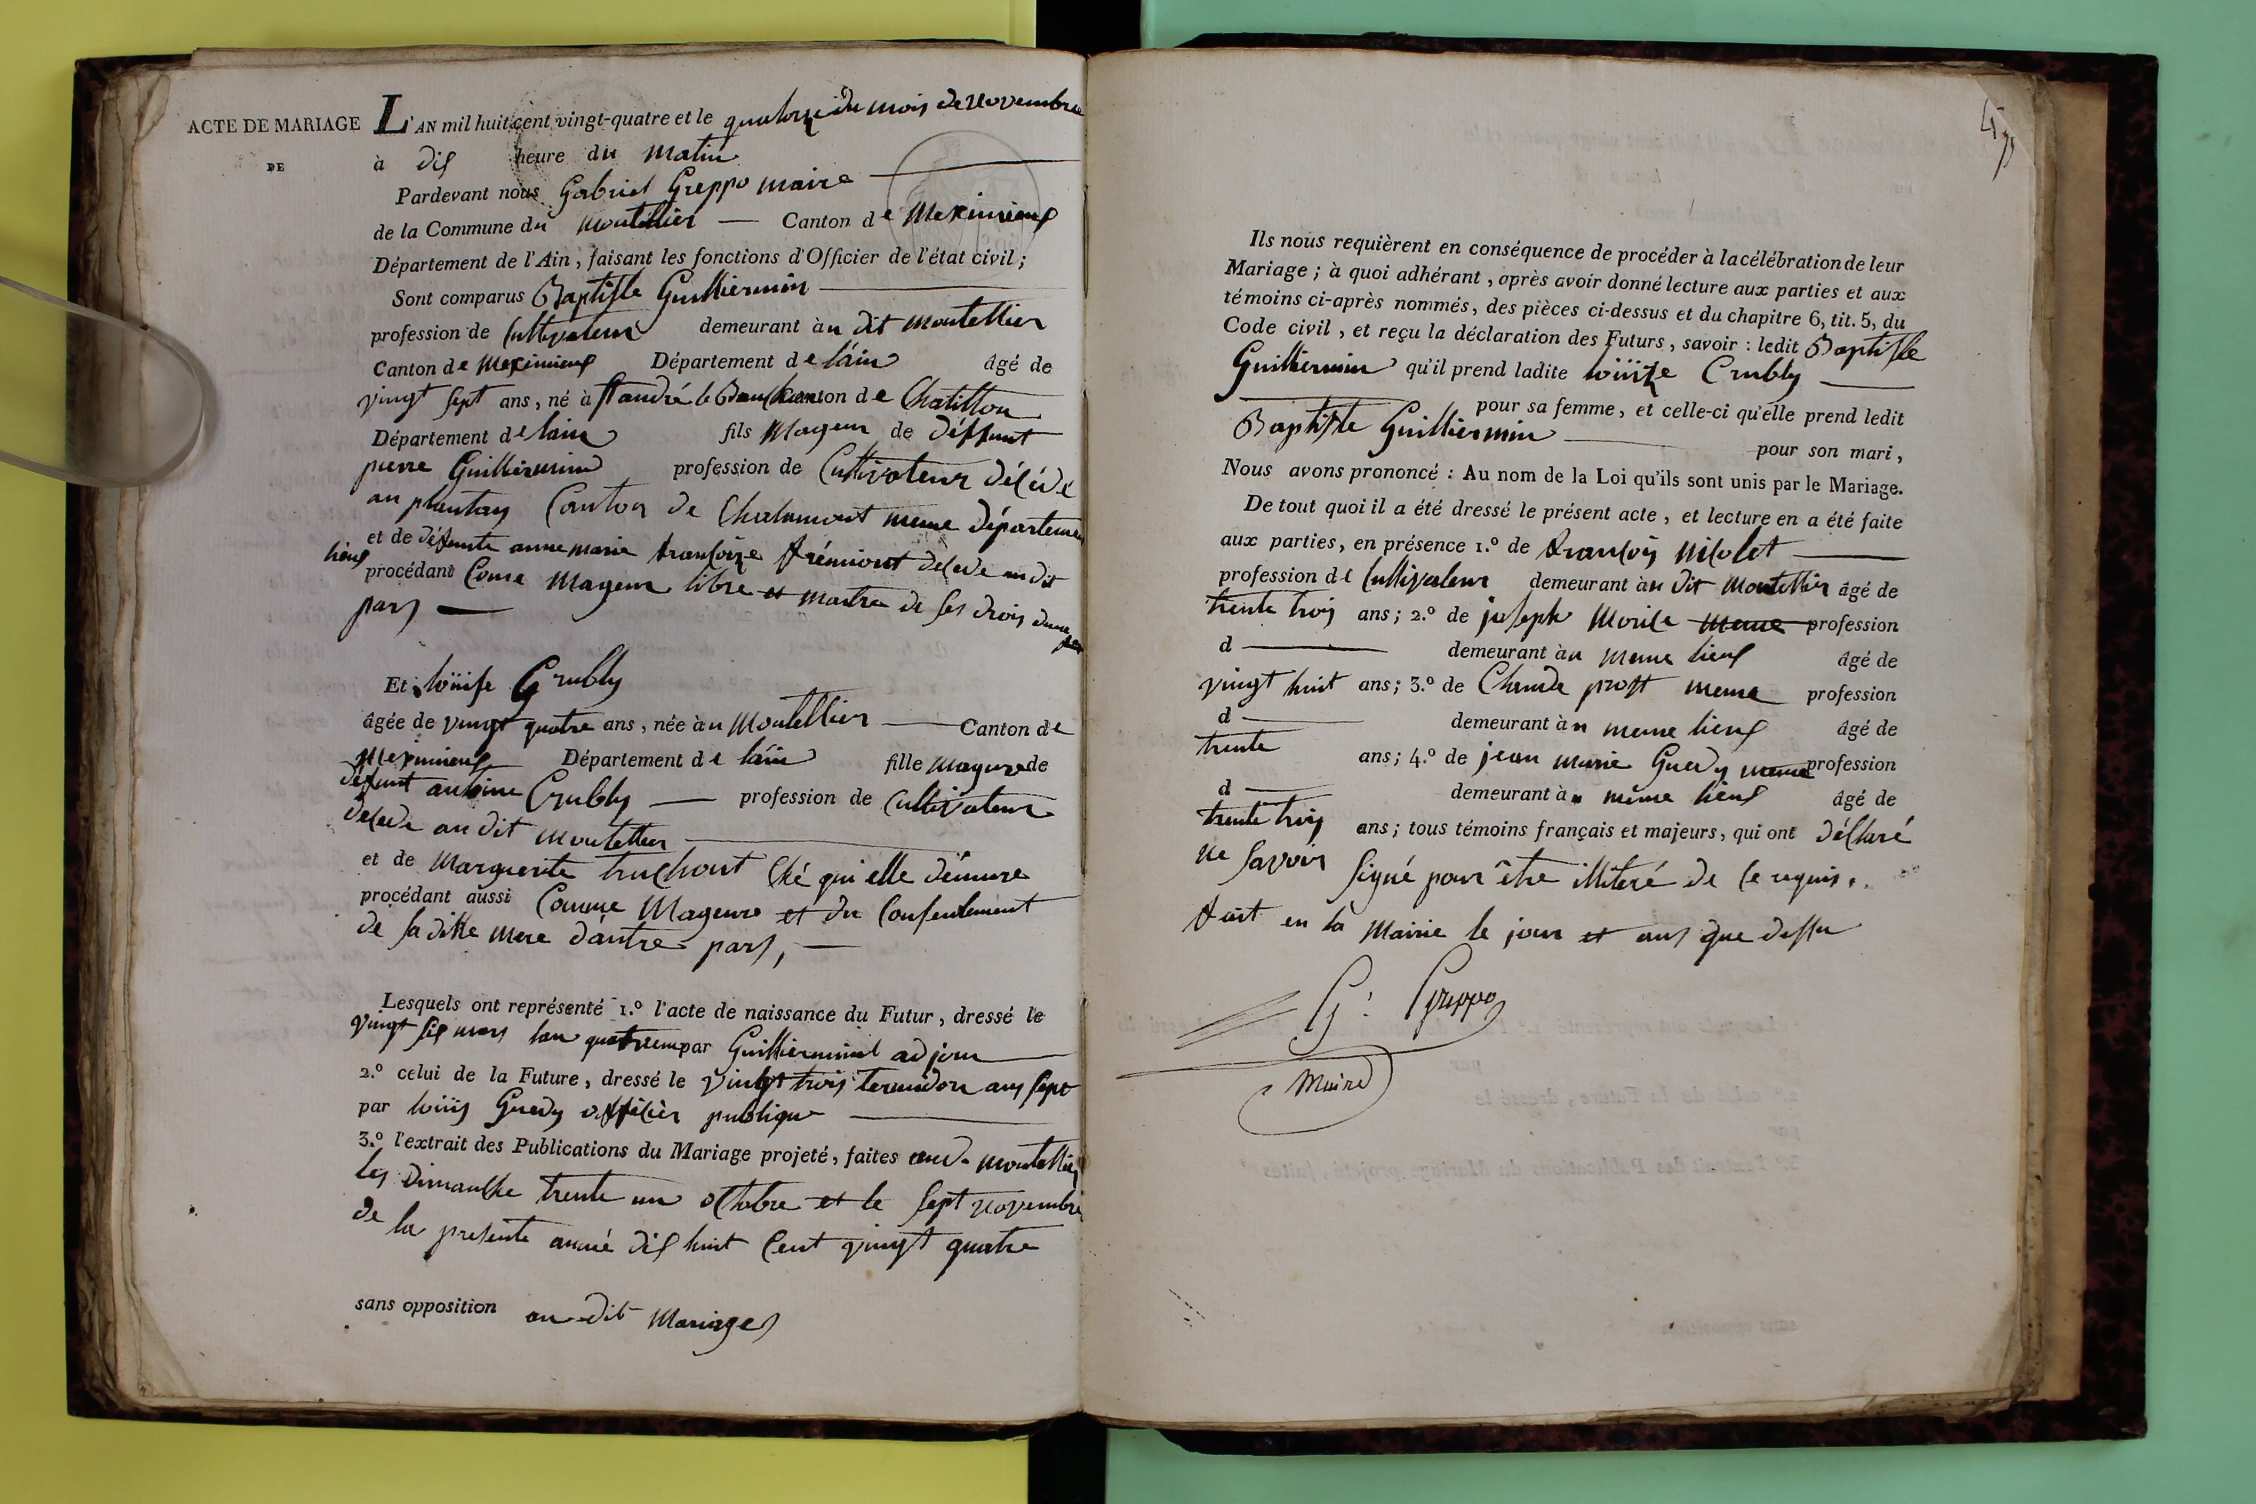 ACTE DE MARIAGE
DE
L'AN mil huit cent vingt-quatre et le quatorze du mois de novembre
à dix heure du matin
Pardevant nous Gabriel Greppo maire
de la Commune du montellier Canton de Meximieux
Département de l'Ain, faisant les fonctions d'Officier de l'état civil;
Sont comparus Baptiste Guilliermin
profession de Cultivateur demeurant àu dit montellier
Canton de Meximieux Département de láin âgé de
vingt sept ans, né à St andré le Canton de Chatillon
Département de lain fils Mageur de déffunt
pierre Guilliermin profession de Cultivateur décédé
au plantay Canton de Chalamont meme départemen
et de défunte anne marie francoize frémiont décédé au dit
lieux
procédant Come Mageur libre et maitre de ses drois dune
part
Et loüise Grubly
âgée de vingt quatre ans, née àu Montellier Canton de
Meximieux Département de láin fille mageure de
défunt antoine Crubly profession de Cultivateur
décédé au dit montellier
et de Marguerite truchont Ché qui elle démure
procédant aussi Comme Mageure et du Consentement
de sa ditte mere dautre part,
Lesquels ont représenté 1.º l'acte de naissance du Futur, dressé le
vingt six mars lan par Guilliermin adjoin
2.º celui de la Future, dressé le vingt trois termidor ans sept
par loüis Guedy offécièr publique
3.º l'extrait des Publications du Mariage projeté, faites montellier
les Dimanche trente un octobre et le sept novembre
de la presente anné dix huit Cent vingt quatre
sans opposition au dit Mariage
Ils nous requièrent en conséquence de procéder à la célébration de leur
Mariage; à quoi adhérant, après avoir donné lecture aux parties et aux
témoins ci-après nommés, des pièces ci-dessus et du chapitre 6, tit. 5, du
Code civil, et reçu la déclaration des Futurs, savoir : ledit Baptiste
Guilliermin qu'il prend ladite loüize Crubly
pour sa femme, et celle-ci qu'elle prend ledit
Baptiste Guilliermin pour son mari,
Nous avons prononcé : Au nom de la Loi qu'ils sont unis par le Mariage.
De tout quoi il a été dressé le présent acte, et lecture en a été faite
aux parties, en présence 1.º de francois nicolet
profession de Cultivateur demeurant àu dit Montellier âgé de
trente trois ans; 2.º de joseph Morile meme profession
d demeurant àu meme lieux âgé de
vingt huit ans; 3.º de Claude prost meme profession
d demeurant àu meme lieux âgé de
trente ans; 4.º de jean marie Guedy meme profession
d demeurant àu même lieux âgé de
trente trois ans; tous témoins français et majeurs, qui ont déclaré
ne savoir signé pour être illiteré de ce requis.
fait en la Mairie le jour et ans que dessu
G. Greppo
Maire